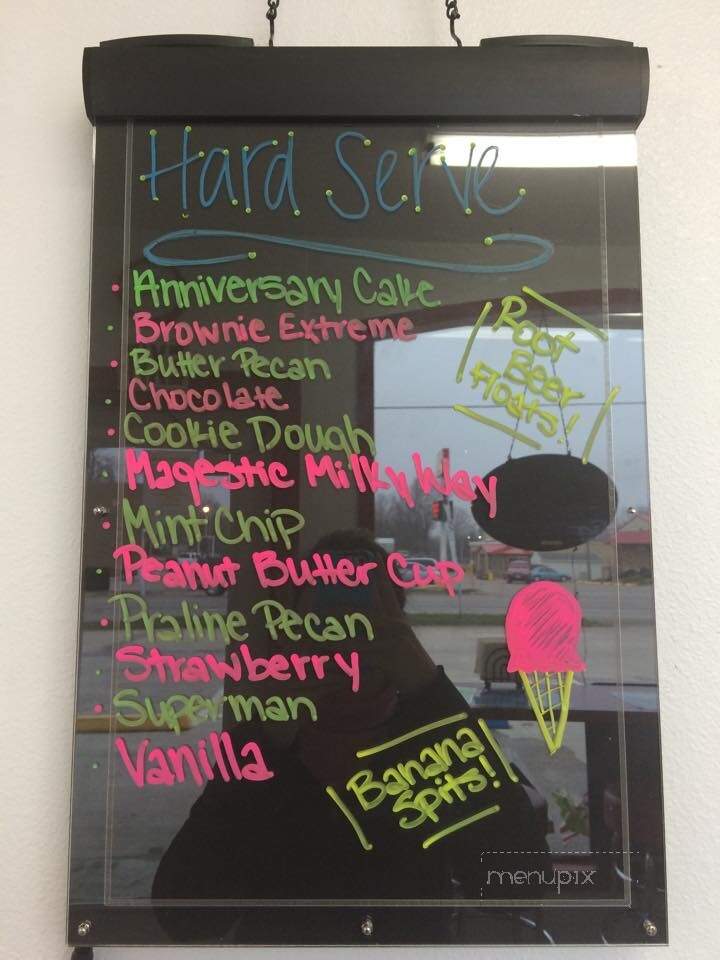 Hard Serve
Anniversary Cake
Brownie Extreme
Butter Pecan
Chocolate
Cookie Dough
Magestic Milky Way
Mint Chip
Peanut Butter Cup
Praline Pecan
Strawberry
Superman
Vanilla
Root
Beer
Floats!
Banana
Spits!
menupix